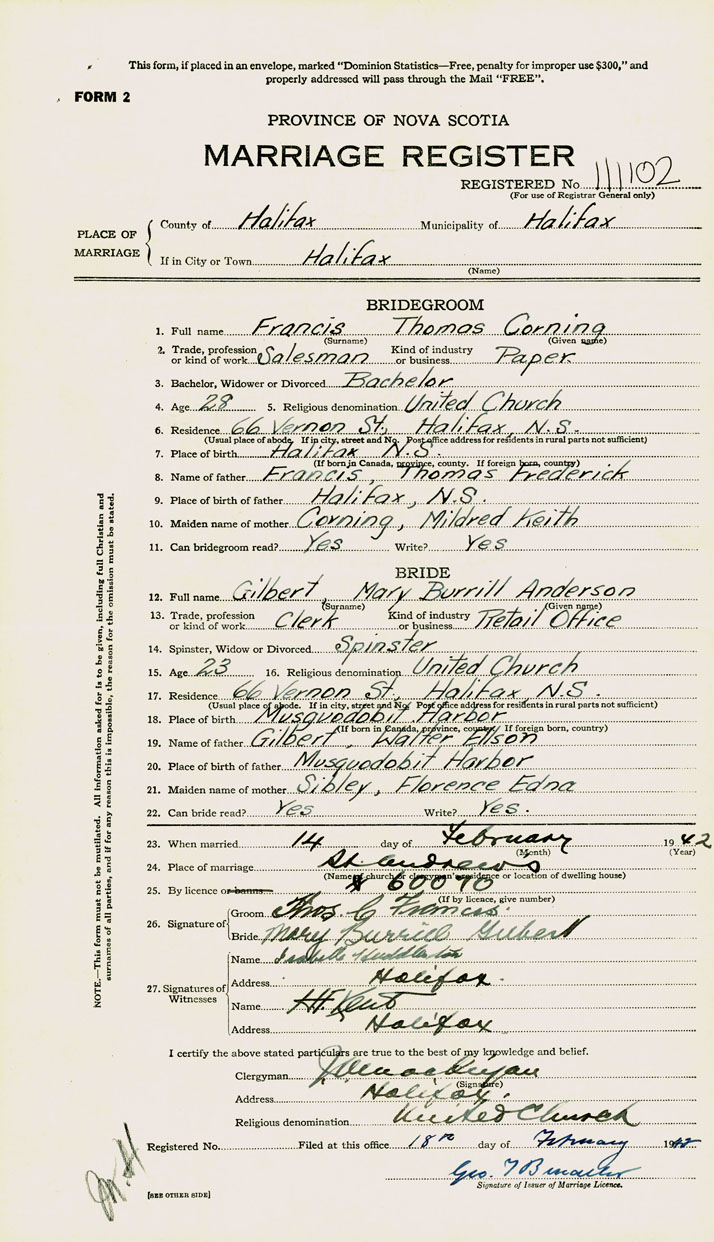 This form, if placed in an envelope, marked “Dominion Statistics—Free, penalty for improper use $300,” and
properly addressed will pass through the Mail “FREE”.
FORM 2
PROVINCE OF NOVA SCOTIA
MARRIAGE REGISTER
REGISTERED No. 111102
(For use of Registrar General only)
PLACE OF MARRIAGE
County of Halifax Municipality of Halifax
If in City or Town Halifax
(Name)
BRIDEGROOM
1. Full name Francis Thomas Corning
(Surname) (Given name)
2. Trade, profession or kind of work Salesman Kind of industry or business Paper
3. Bachelor, Widower or Divorced Bachelor
4. Age 28 5. Religious denomination United Church
6. Residence 66 Vernon St., Halifax, N.S.
(Usual place of abode. If in city, street and No. Post office address for residents in rural parts not sufficient)
7. Place of birth Halifax N.S.
(If born in Canada, province, county. If foreign born, country)
8. Name of father Francis, Thomas Frederick
9. Place of birth of father Halifax, N.S.
10. Maiden name of mother Corning, Mildred Keith
11. Can bridegroom read? Yes Write? Yes
BRIDE
12. Full name Gilbert, Mary Burrill Anderson
(Surname) (Given name)
13. Trade, profession or kind of work Clerk Kind of industry or business Retail Office
14. Spinster, Widow or Divorced Spinster
15. Age 23 16. Religious denomination United Church
17. Residence 66 Vernon St., Halifax, N.S.
(Usual place of abode. If in city, street and No. Post office address for residents in rural parts not sufficient)
18. Place of birth Musquodobit Harbor
(If born in Canada, province, county. If foreign born, country)
19. Name of father Gilbert, Walter
20. Place of birth of father Musquodobit Harbor
21. Maiden name of mother Sibley, Florence Edna
22. Can bride read? Yes Write? Yes.
23. When married 14 day of February 1942
(Month) (Year)
24. Place of marriage St Andrews
(Name of church or clergyman's residence or location of dwelling house)
25. By licence or banns # 60070
(If by licence, give number)
26. Signature of
Groom Thos. C Francis.
Bride Mary Burrill Gilbert
27. Signatures of Witnesses
Name Isabelle
Address Halifax.
Name Kent
Address Halifax
I certify the above stated particulars are true to the best of my knowledge and belief.
Clergyman
(Signature)
Address Halifax.
Religious denomination United Church
Registered No. Filed at this office 18th day of February 1942
Geo.
Signature of Issuer of Marriage Licence.
[SEE OTHER SIDE]
NOTE.—This form must not be mutilated. All information asked for is to be given, including full Christian and
surnames of all parties, and if for any reason this is impossible, the reason for the omission must be stated.